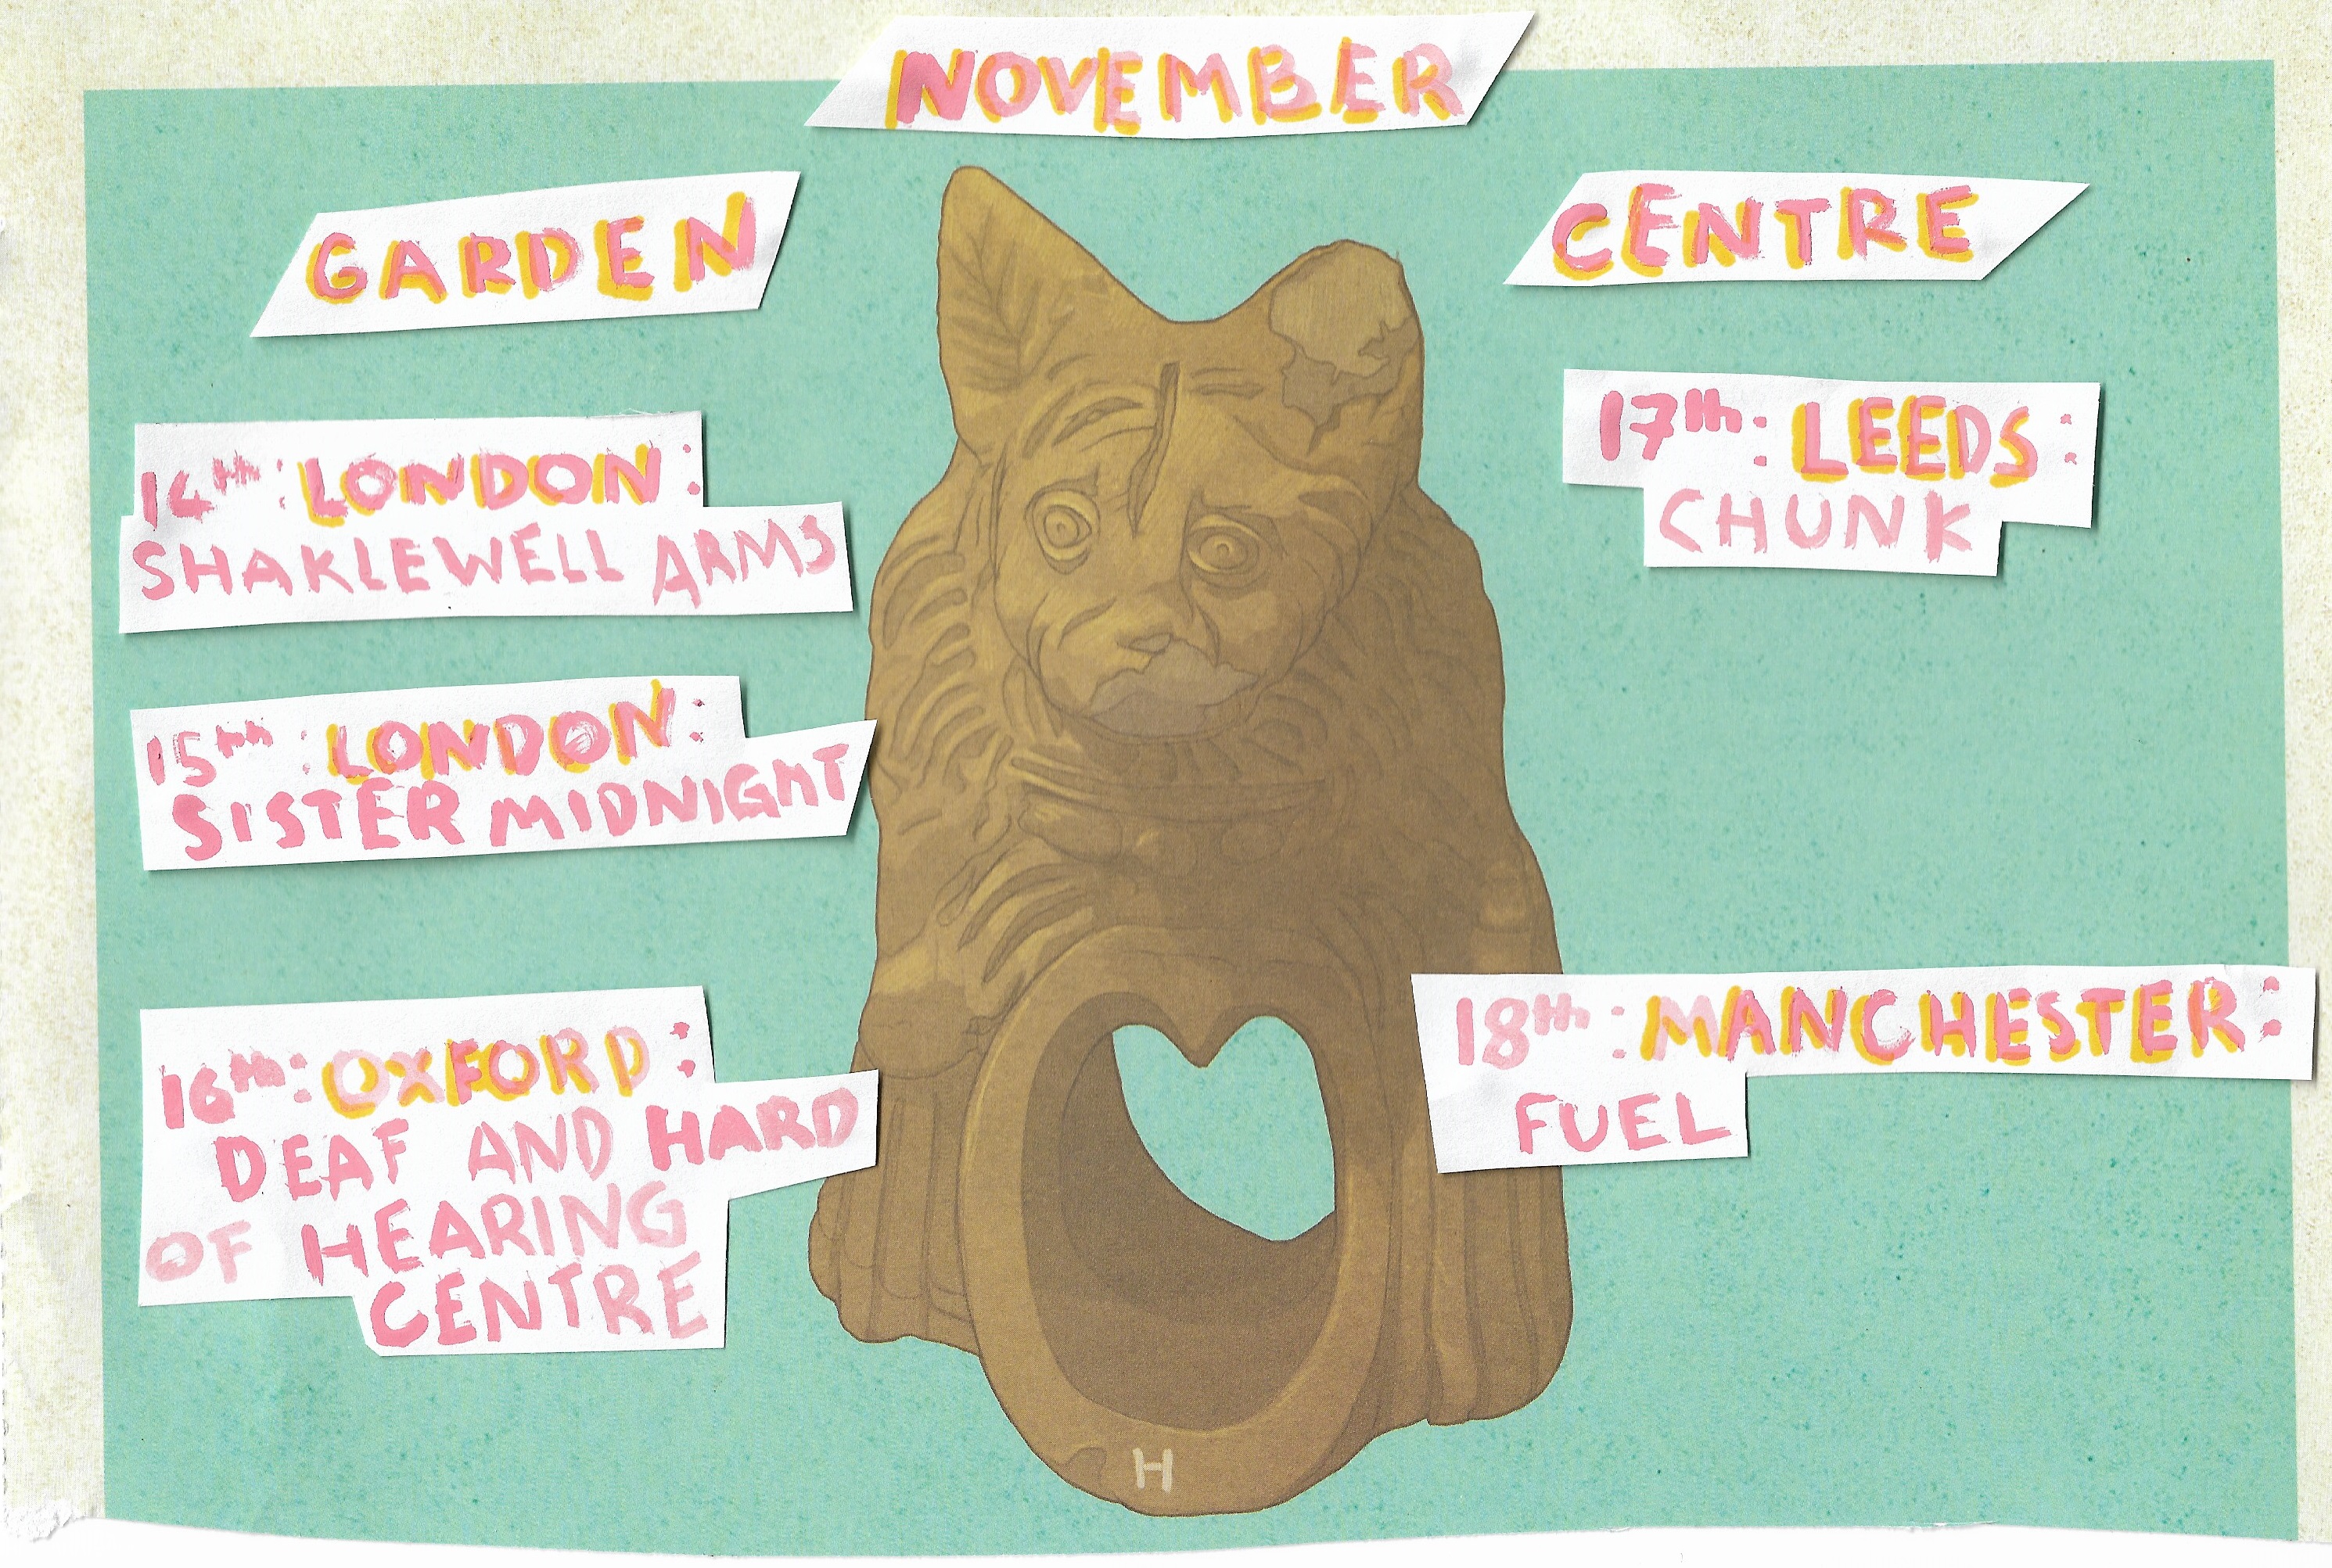 NOVEMBER
GARDEN
CENTRE
14th: LONDON:
SHAKLEWELL ARMS
15th: LONDON:
SISTER MIDNIGHT
16th: OXFORD:
DEAF AND HARD
OF HEARING
CENTRE
17th: LEEDS:
CHUNK
18th: MANCHESTER:
FUEL
H